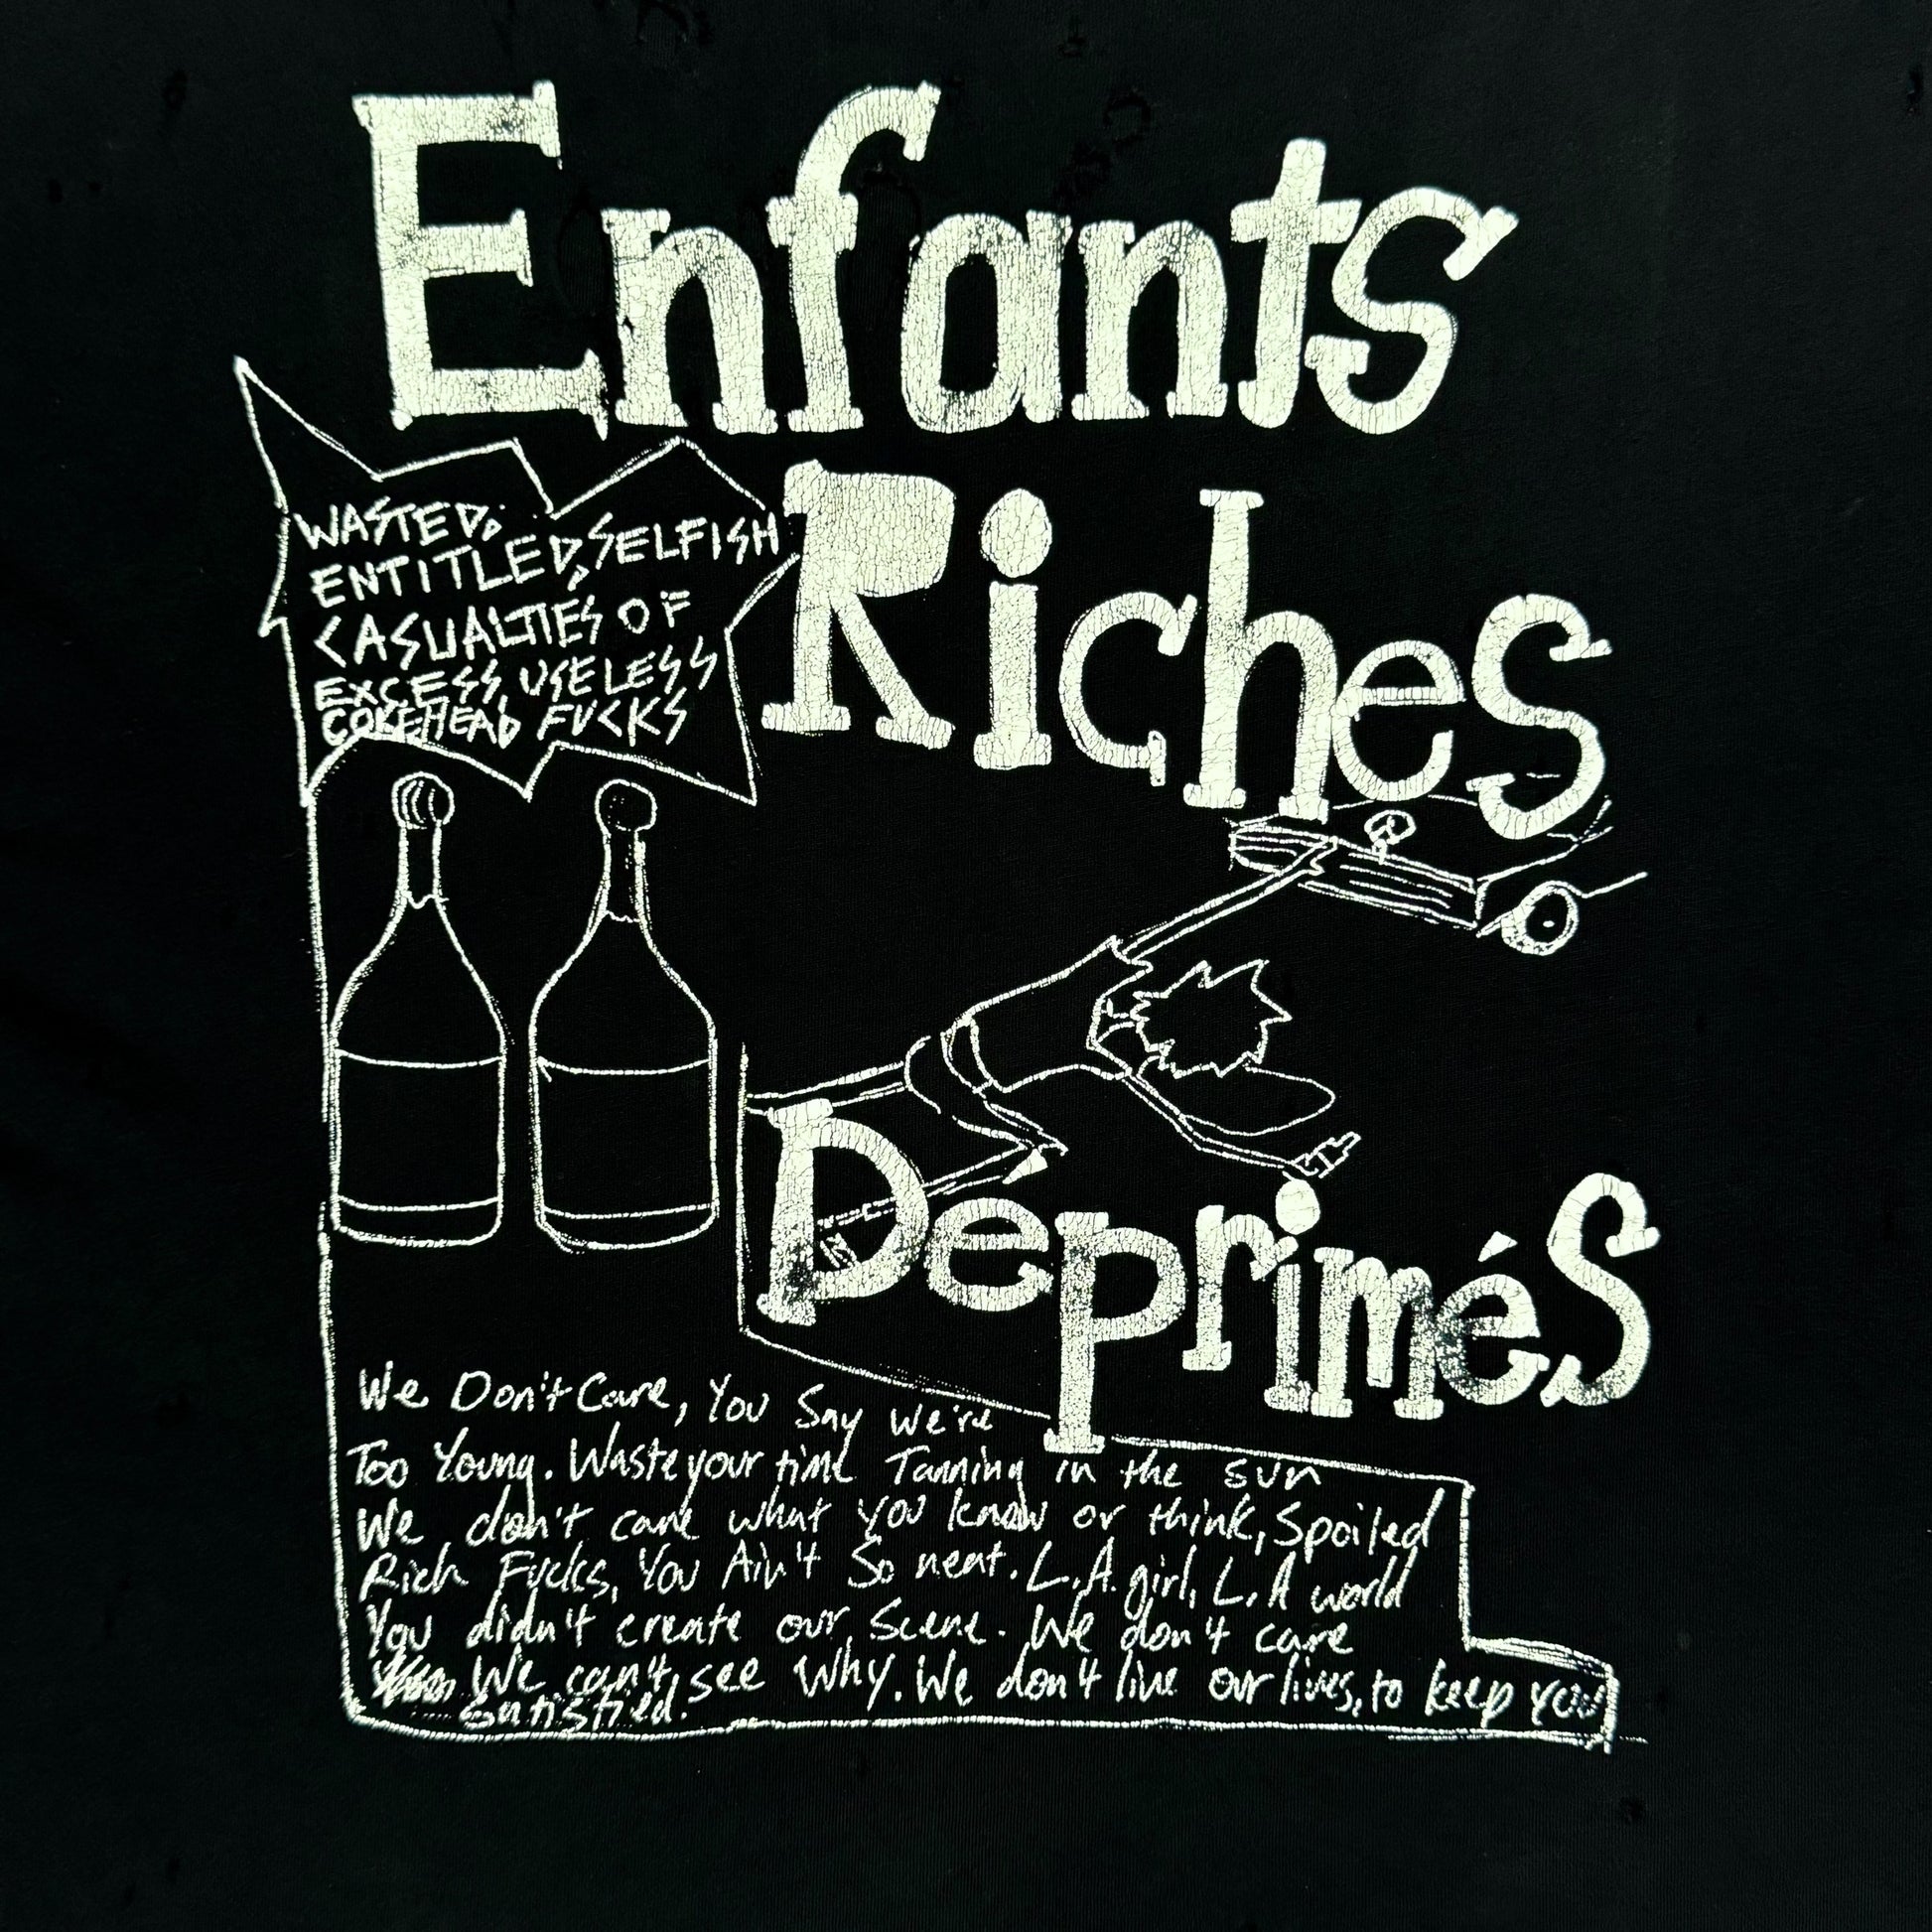 Enfants
WASTED,
ENTITLED, SELFISH
CASUALTIES OF
EXCESS, USELESS
COKEHEAD FUCKS
Riches
Deprimés
We Don't Care, You Say we're
Too Young. Waste your time Tanning in the sun
We don't care what you know or think, Spoiled
Rich Fucks, You Ain't So neat. L.A. girl, L.A world
You didn't create our Scene. We don't care
We can't see Why. We don't live our lives, to keep you
satisfied.